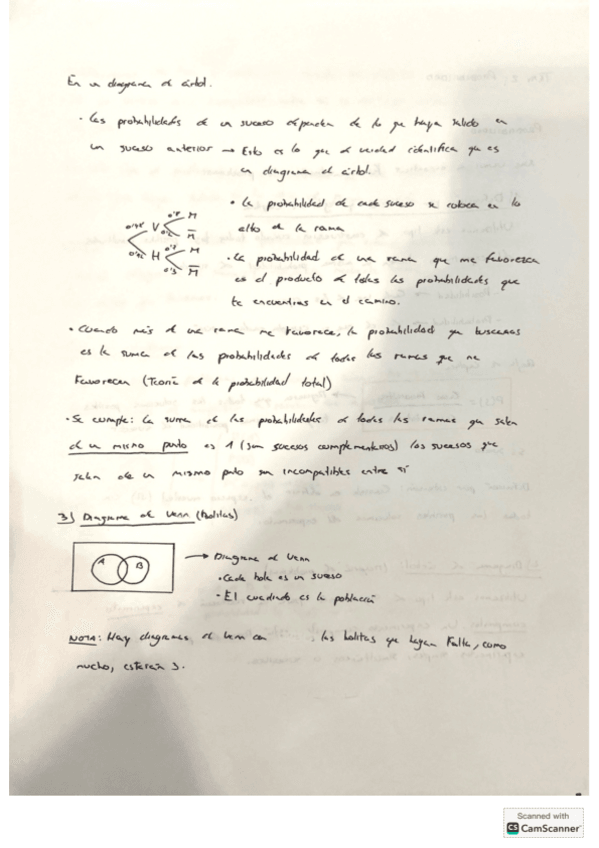 En un diagrama de árbol.
· Las probabilidades de un suceso dependen de lo que haya salido en
un suceso anterior → Esto es lo que de verdad identifica que es
un diagrama de árbol.
· La probabilidad de cada suceso se coloca en lo
alto de la rama
V M
M̅
H M
M̅
· La probabilidad de una rama que me favorezca
es el producto de todas las probabilidades que
te encuentras en el camino.
· Cuando más de una rama me favorece, la probabilidad que buscamos
es la suma de las probabilidades de todas las ramas que me
favorecen (Teoría de la probabilidad total)
· Se cumple: La suma de las probabilidades de todas las ramas que salen
de un mismo punto es 1 (son sucesos complementarios) los sucesos que
salen de un mismo punto son incompatibles entre sí
3) Diagrama de Venn (bolitas)
A B
→ Diagrama de Venn
· Cada bola es un suceso
· El cuadrado es la población
NOTA: Hay diagramas de Venn con las bolitas que hagan falta, como
mucho, estarán 3.
Scanned with
CS CamScanner